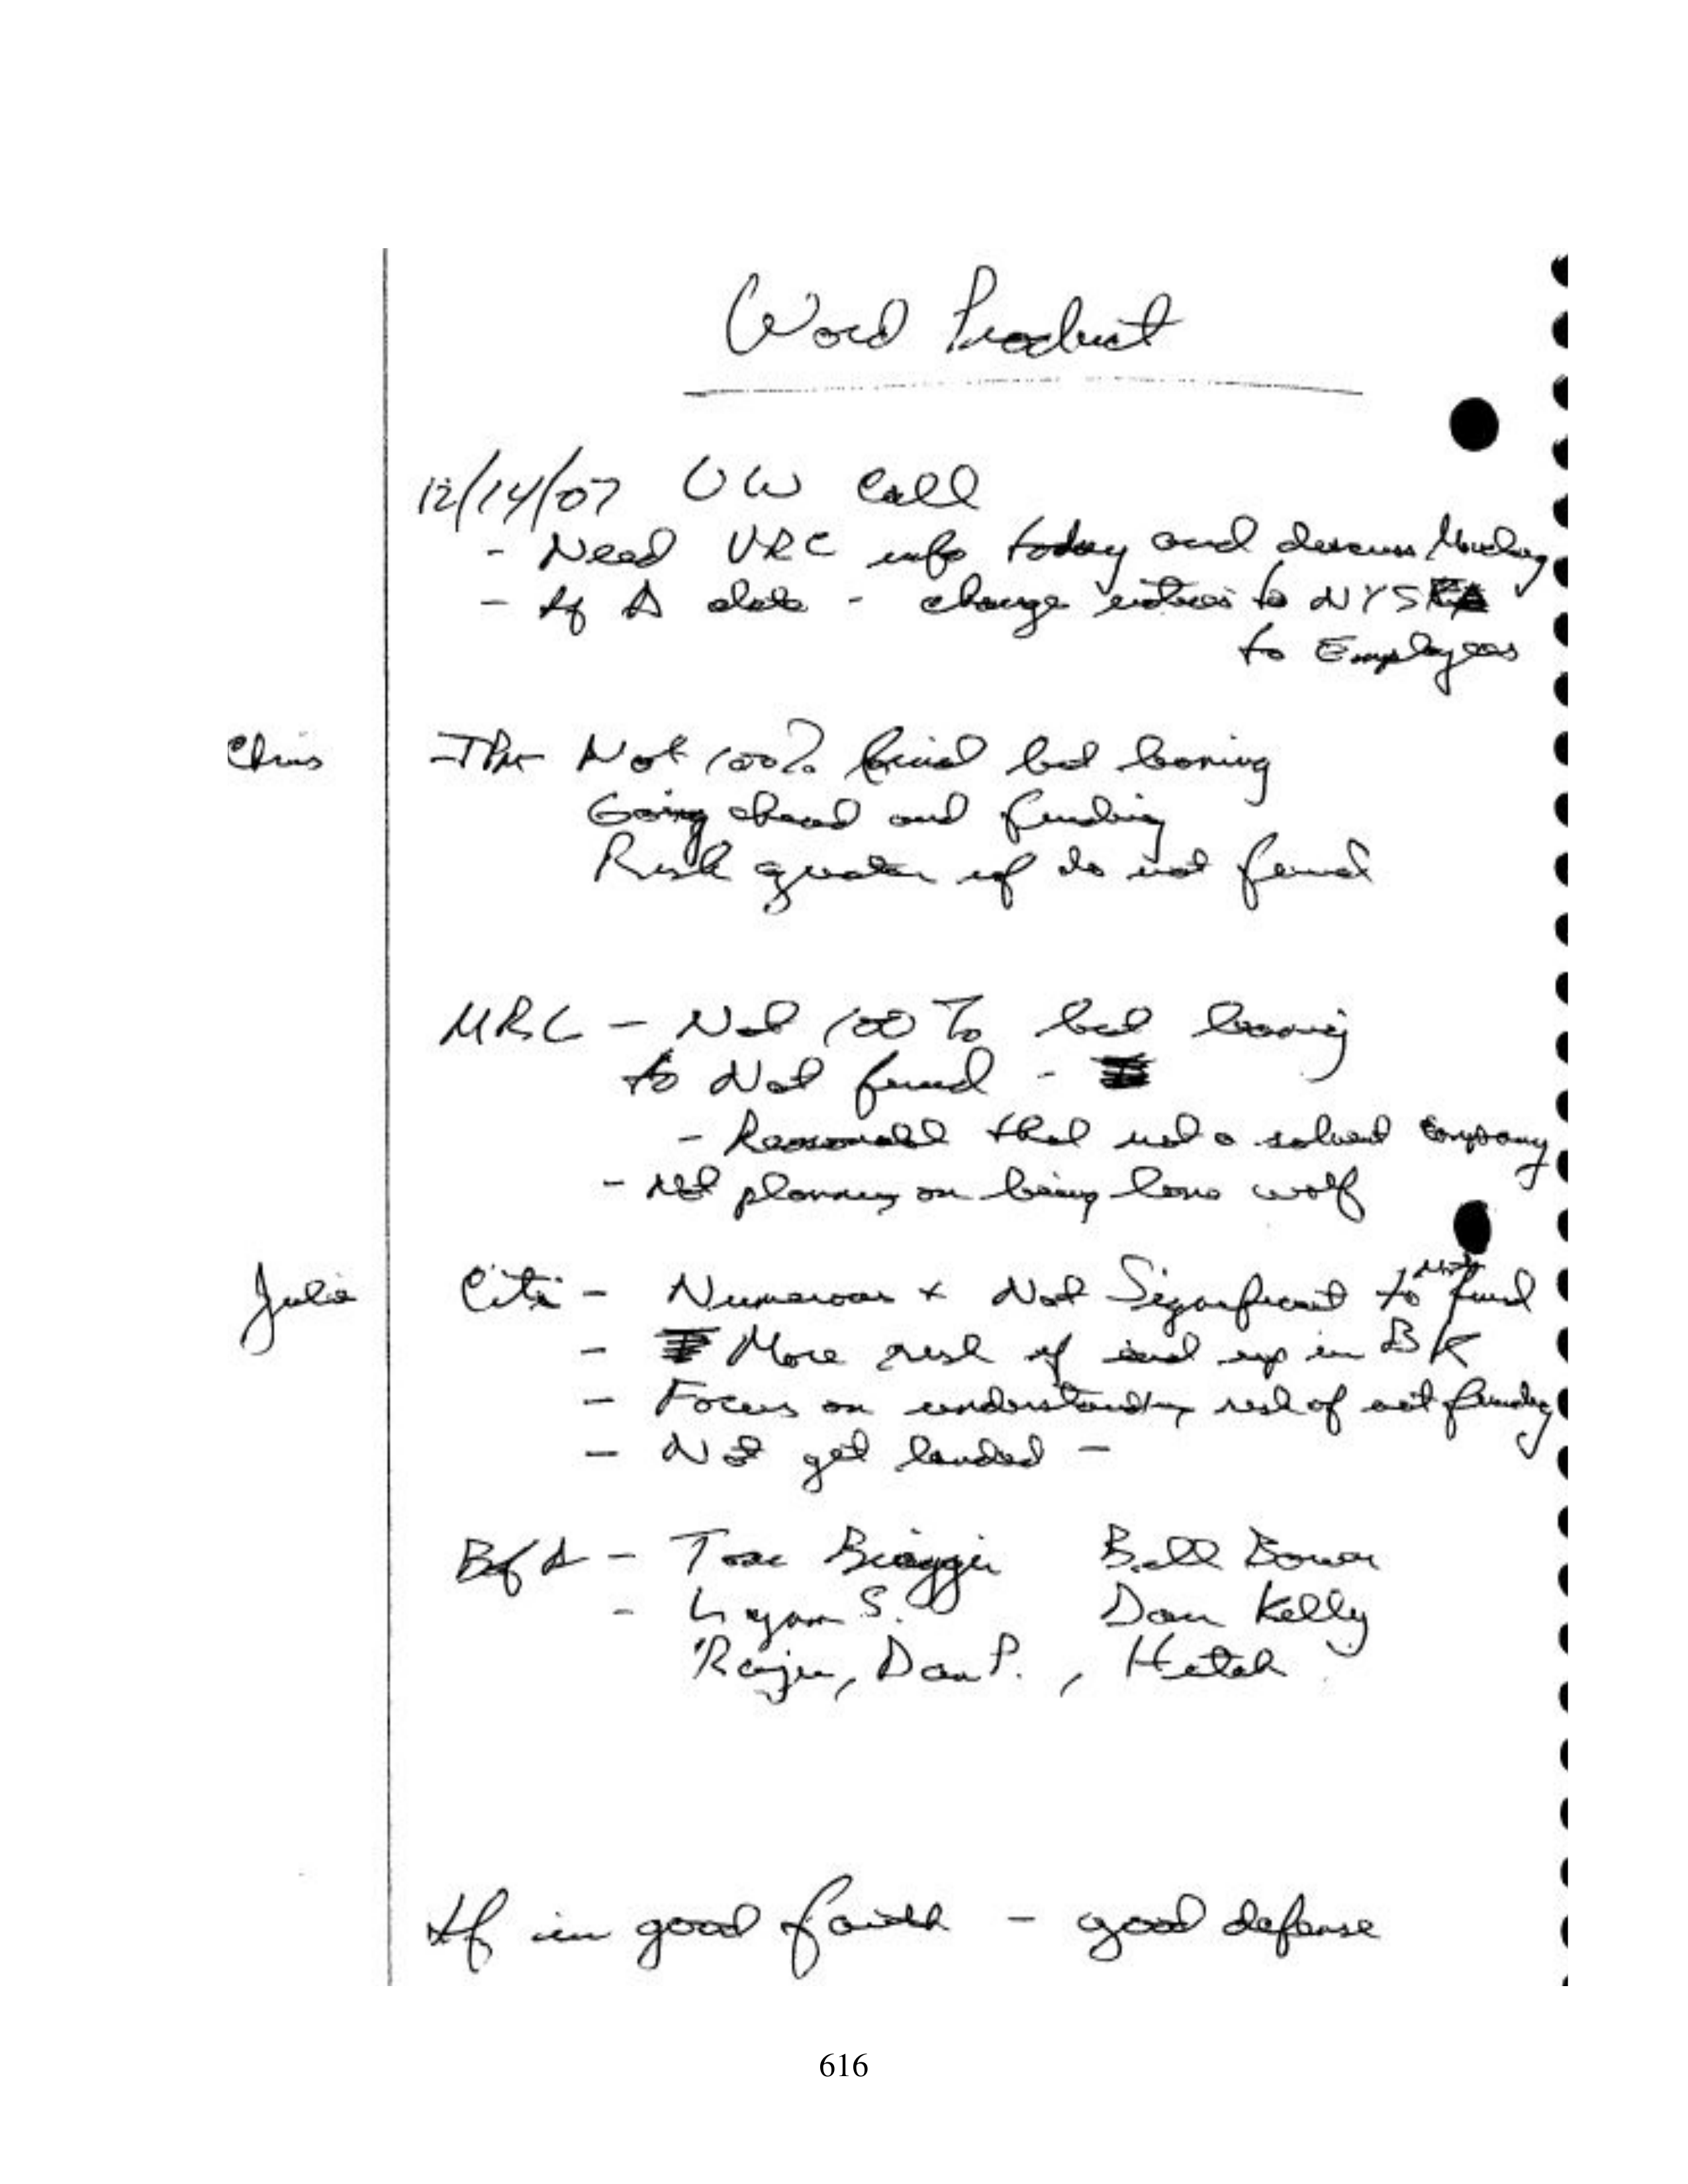 Word Product
12/14/07 UW Call
- Need VRC info today and discuss Monday
- If Δ date - change notices to NYSE
to Employees
Chris - JPM Not 100% final but leaning
Going ahead and funding
Risk greater if do not fund
MRL - Not 100% but leaning
to Not fund -
- Reasonable that not a solvent company
- Not planning on being lone wolf
Julie Citi - Numerous + Not Significant to not fund
- More risk if end up in BK
- Focus on understanding risk of not funding
- Not get
BofA - Tom Bill Bowen
- Lynn S. Dan Kelly
Raju, Dan P.,
If in good faith - good defense
616